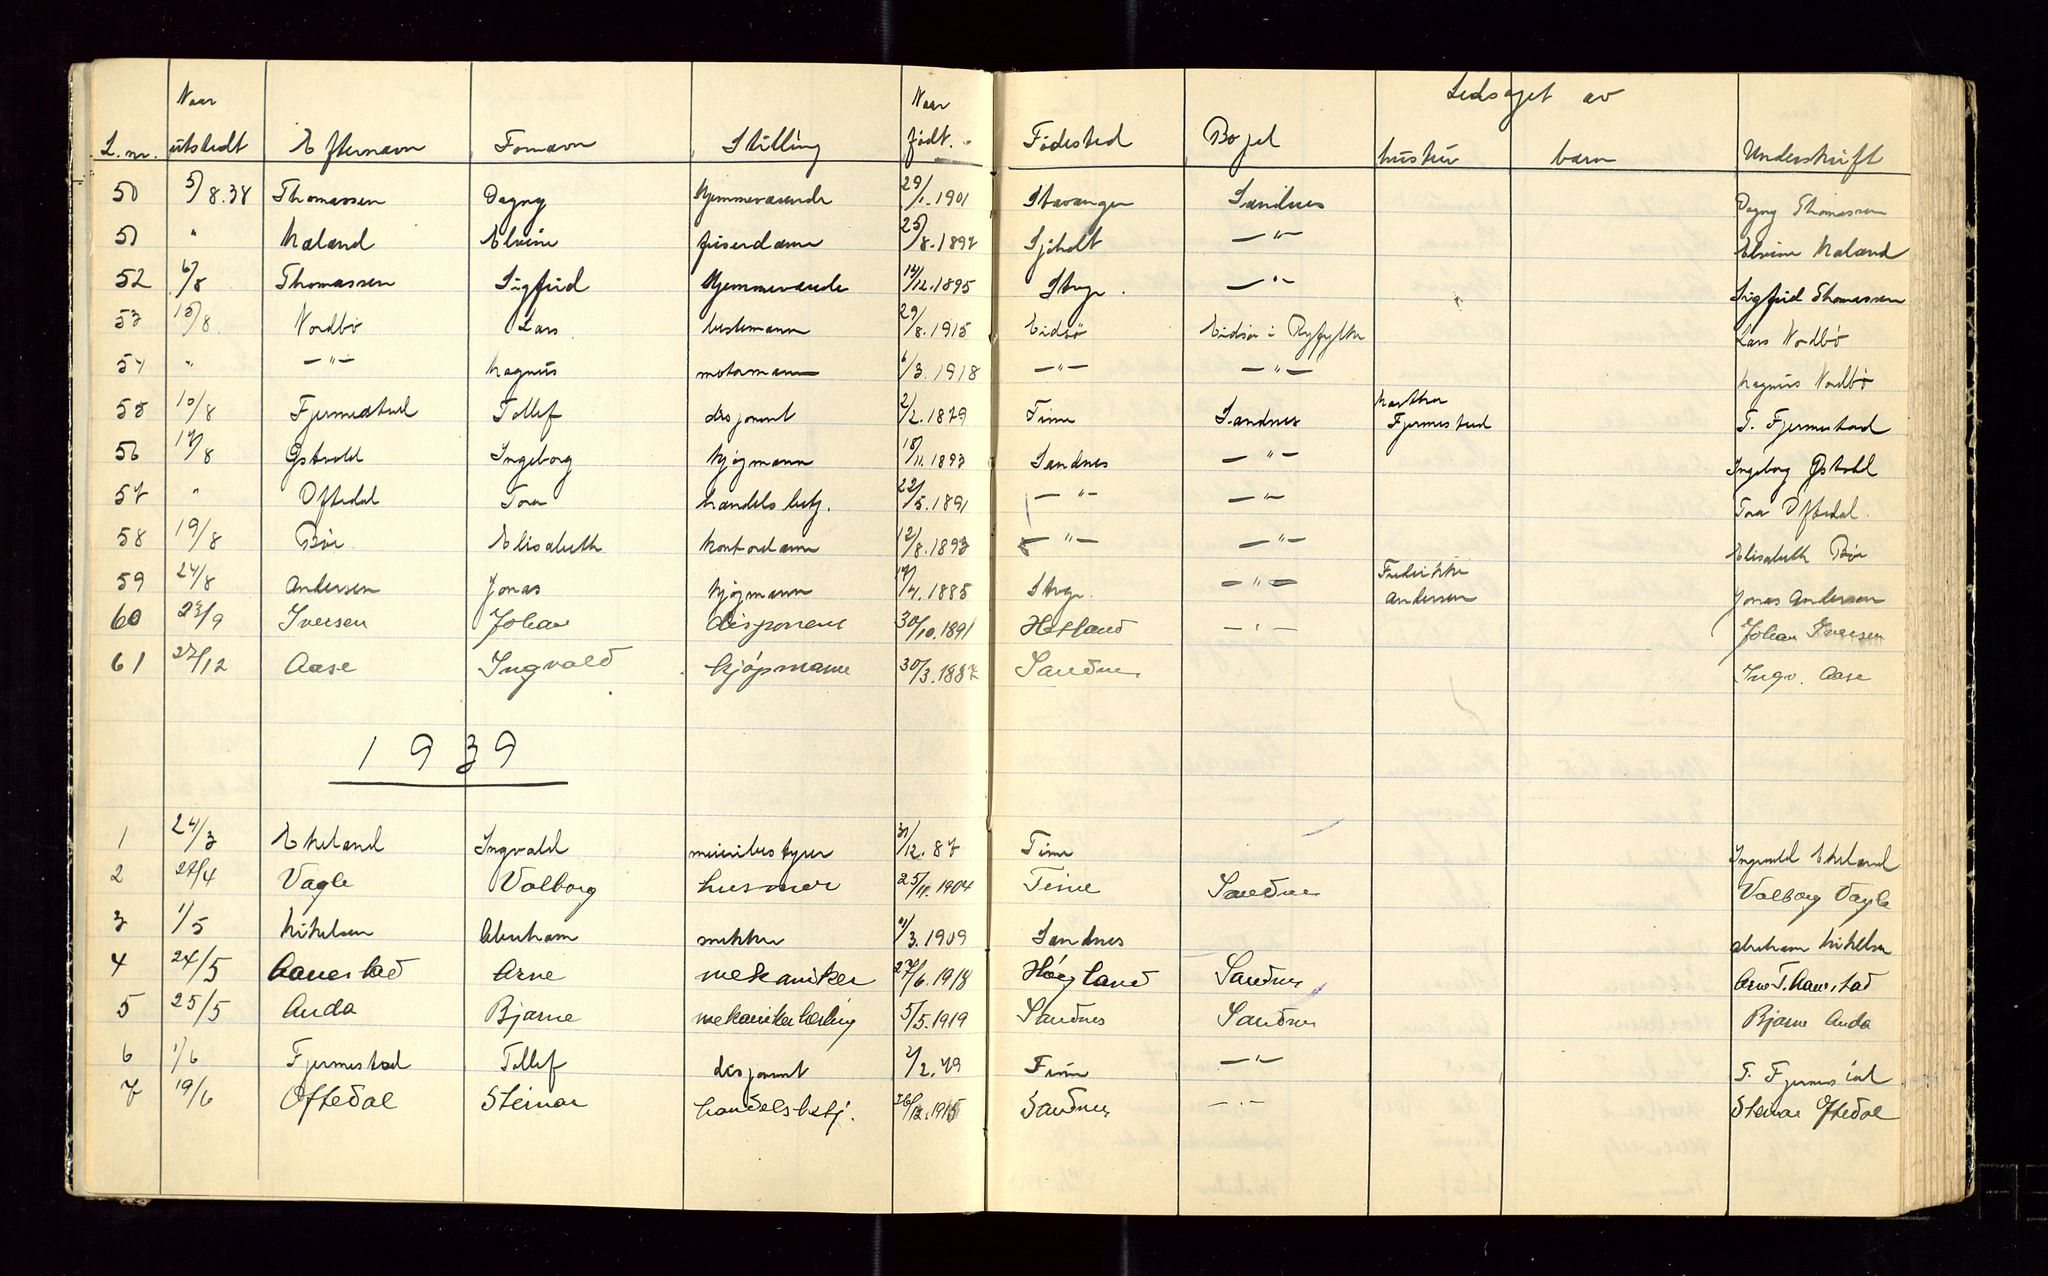 Ledsaget av
L.nr. Naar utstedt Efternavn Fornavn Stilling Naar født. Fødested Bopel hustru barn Underskrift
50 5/8.38 Thomassen Dagny hjemmeværende 29/1.1901 Stavanger Sandnes Dagny Thomassen
51 " Maland Elvine frisørdame 25/8.1897 Sjøholt —"— Elvine Maland
52 6/8 Thomassen Sigfrid Hjemmeværende 14/12.1895 Stvgr. —"— Sigfrid Thomassen
53 15/8. Nordbø Lars bestemann 29/8.1915 Eidsø Eidsø i Ryfylke Lars Nordbø
54 " —"— Magnus motormann 6/3.1918 —"— —"— Magnus Nordbø
55 10/8 Fjermestad Tollef disponent 2/2.1879 Time Sandnes Martha Fjermestad T. Fjermestad
56 17/8 Østvold Ingeborg kjøpmann 18/11.1893 Sandnes —"— Ingeborg Østvold
57 " Oftedal Tora handelsbetj. 22/5.1891 —"— —"— Tora Oftedal.
58 19/8 Bøe Elisabeth kontordame 12/8.1893 —"— —"— Elisabeth Bøe
59 24/8 Andersen Jonas kjøpmann 17/4.1885 Stvgr. —"— Fredrikke Andersen Jonas Andersen
60 23/9 Iversen Johan disponent 30/10.1891 Hetland —"— Johan Iversen
61 27/12 Aase Ingvald kjøpmann 30/3.1887 Sandnes Ingv. Aase
1939
1 24/3 Ekeland Ingvald meieribestyrer 31/12.87 Time Ingvald Ekeland
2 27/4 Vagle Valborg husmor 25/11.1904 Time Sandnes Valborg Vagle
3 1/5 Mikelsen Abraham snekker /3.1909 Sandnes Abraham Mikelsen
4 24/5 Aanestad Arne mekaniker 27/6.1918 Høyland Sandnes Arne T. Aanestad
5 25/5 Anda Bjarne mekanikerlærling 5/5.1919 Sandnes Sandnes Bjarne Anda
6 1/6 Fjermestad Tollef disponent 2/2.79 Time —"— T. Fjermestad
7 19/6 Oftedal Steinar handelsbetj. 26/12.1915 Sandnes —"— Steinar Oftedal